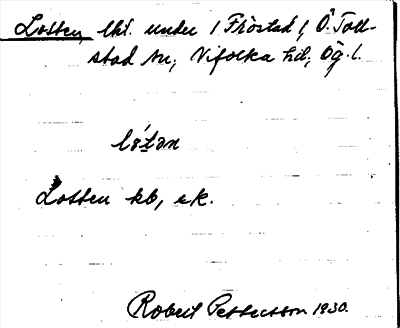 Lotten, lht. under 1 Fröstad 1, Ö. Toll-
stad sn, Vifolka hd, Ög. l.
lót̲ən
Lotten kb, ek.
Robert Pettersson 1930.